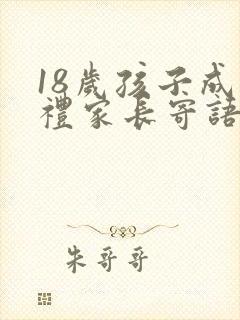 18歲孩子成
禮家長寄語
朱哥哥